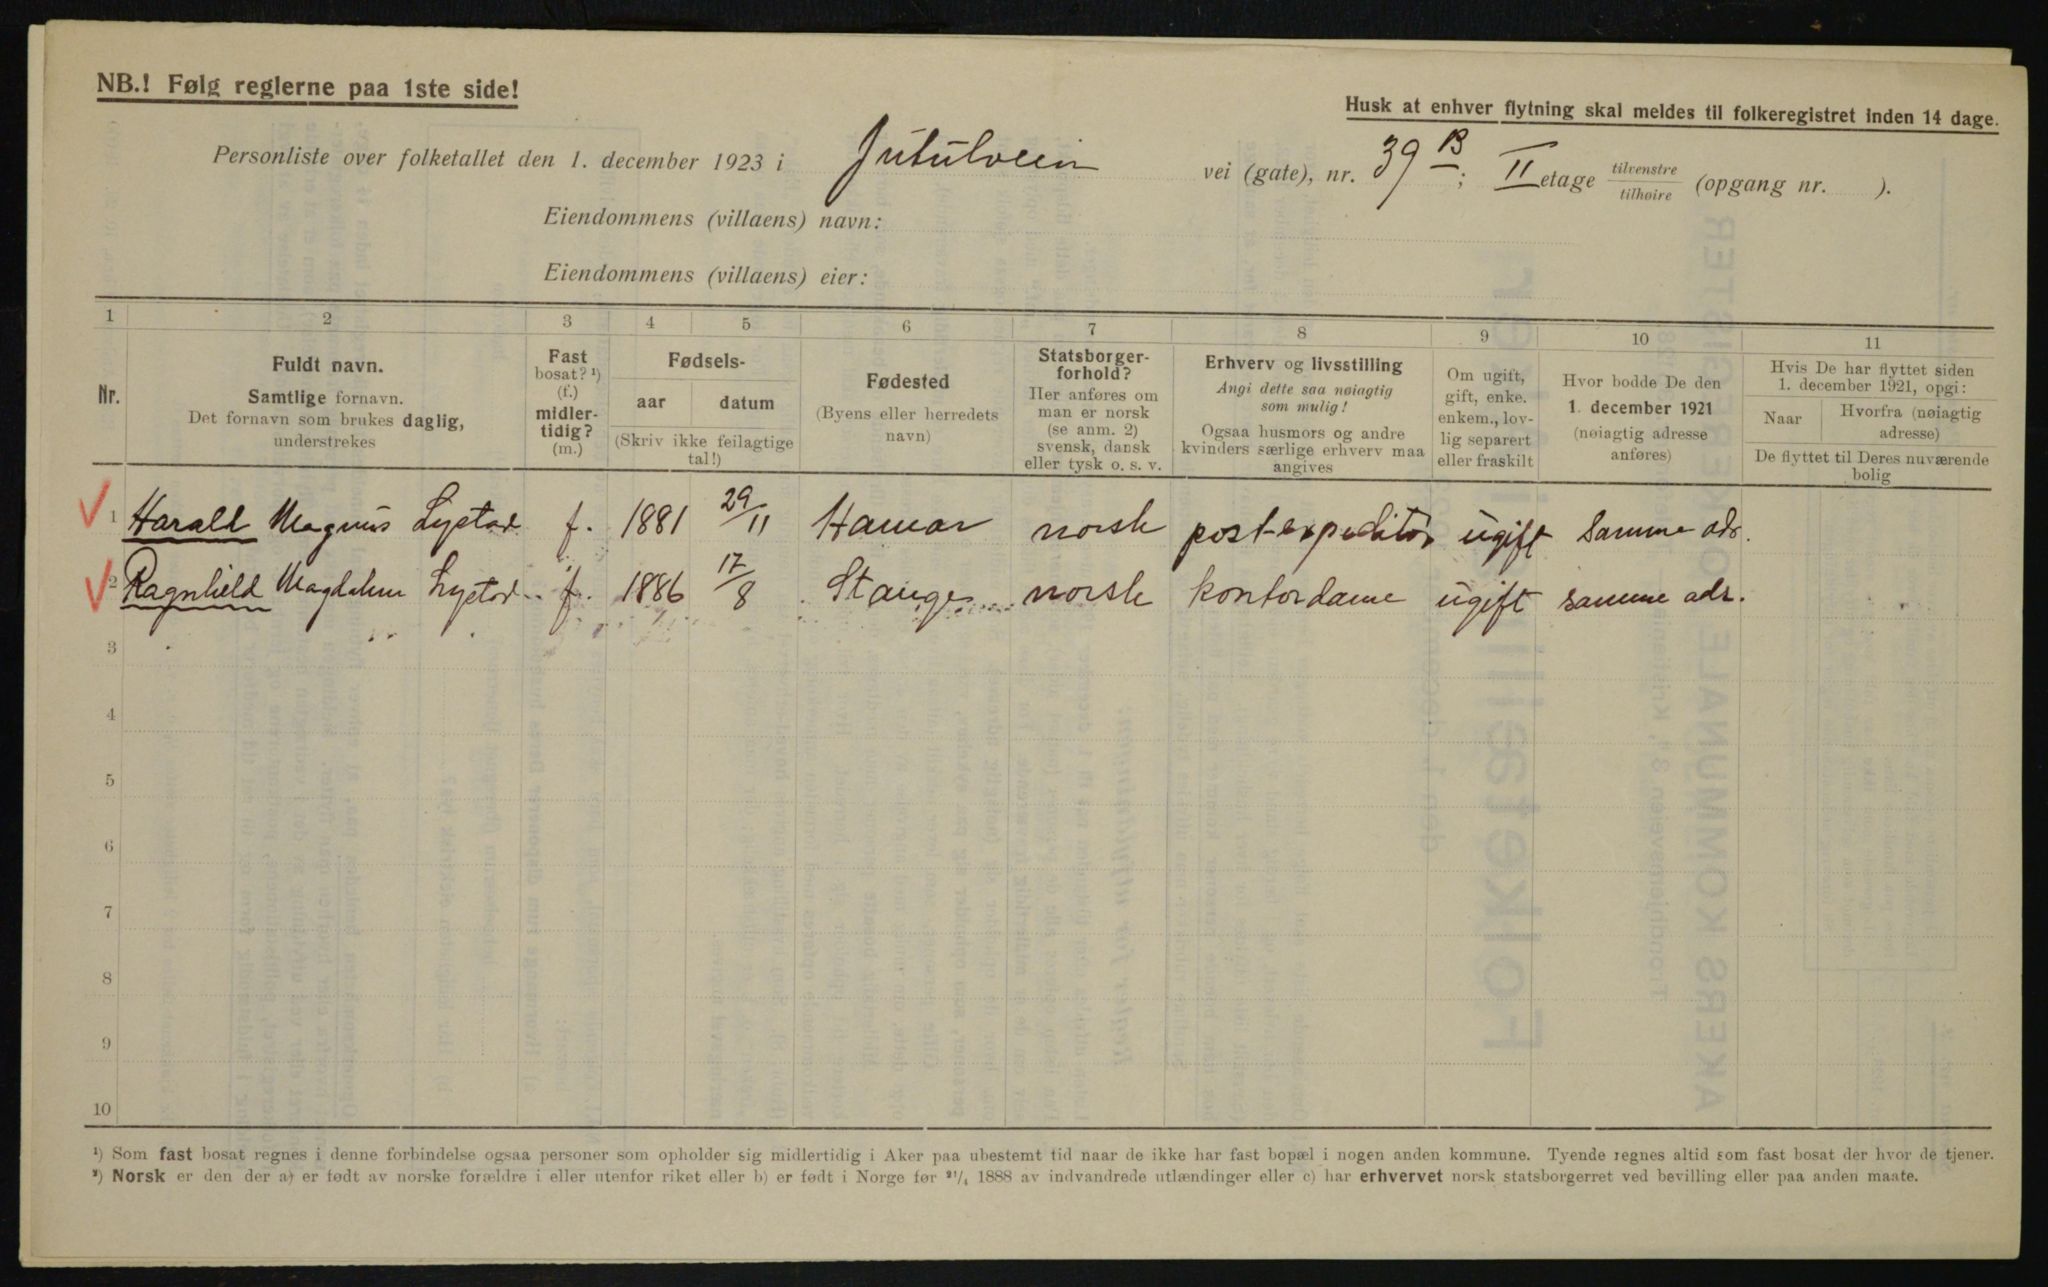 NB.! Følg reglerne paa 1ste side!
Husk at enhver flytning skal meldes til folkeregistret inden 14 dage.
Personliste over folketallet den 1. december 1923 i Jutulveien vei (gate), nr. 39 B; II etage tilvenstre tilhøire (opgang nr. ).
Eiendommens (villaens) navn:
Eiendommens (villaens) eier:
1 2 3 4 5 6 7 8 9 10 11
Nr.
Fuldt navn.
Samtlige fornavn.
Det fornavn som brukes daglig,
understrekes
Fast
bosat? ¹)
(f.)
midler-
tidig?
(m.)
Fødsels-
aar datum
(Skriv ikke feilagtige
tal!)
Fødested
(Byens eller herredets
navn)
Statsborger-
forhold?
Her anføres om
man er norsk
(se anm. 2)
svensk, dansk
eller tysk o. s. v.
Erhverv og livsstilling
Angi dette saa nøiagtig
som mulig!
Ogsaa husmors og andre
kvinders særlige erhverv maa
angives
Om ugift,
gift, enke.
enkem., lov-
lig separert
eller fraskilt
Hvor bodde De den
1. december 1921
(nøiagtig adresse
anføres)
Hvis De har flyttet siden
1. december 1921, opgi:
Naar Hvorfra (nøiagtig
adresse)
De flyttet til Deres nuværende
bolig
1 Harald Magnus Lystad f. 1881 29/11 Hamar norsk postexpeditør ugift samme adr.
2 Ragnhild Magdalene Lystad f. 1886 17/8 Stange norsk kontordame ugift samme adr.
3
4
5
6
7
8
9
10
¹) Som fast bosat regnes i denne forbindelse ogsaa personer som opholder sig midlertidig i Aker paa ubestemt tid naar de ikke har fast bopæl i nogen anden kommune. Tyende regnes altid som fast bosat der hvor de tjener.
²) Norsk er den der a) er født av norske forældre i eller utenfor riket eller b) er født i Norge før ²¹/₄ 1888 av indvandrede utlændinger eller c) har erhvervet norsk statsborgerret ved bevilling eller paa anden maate.